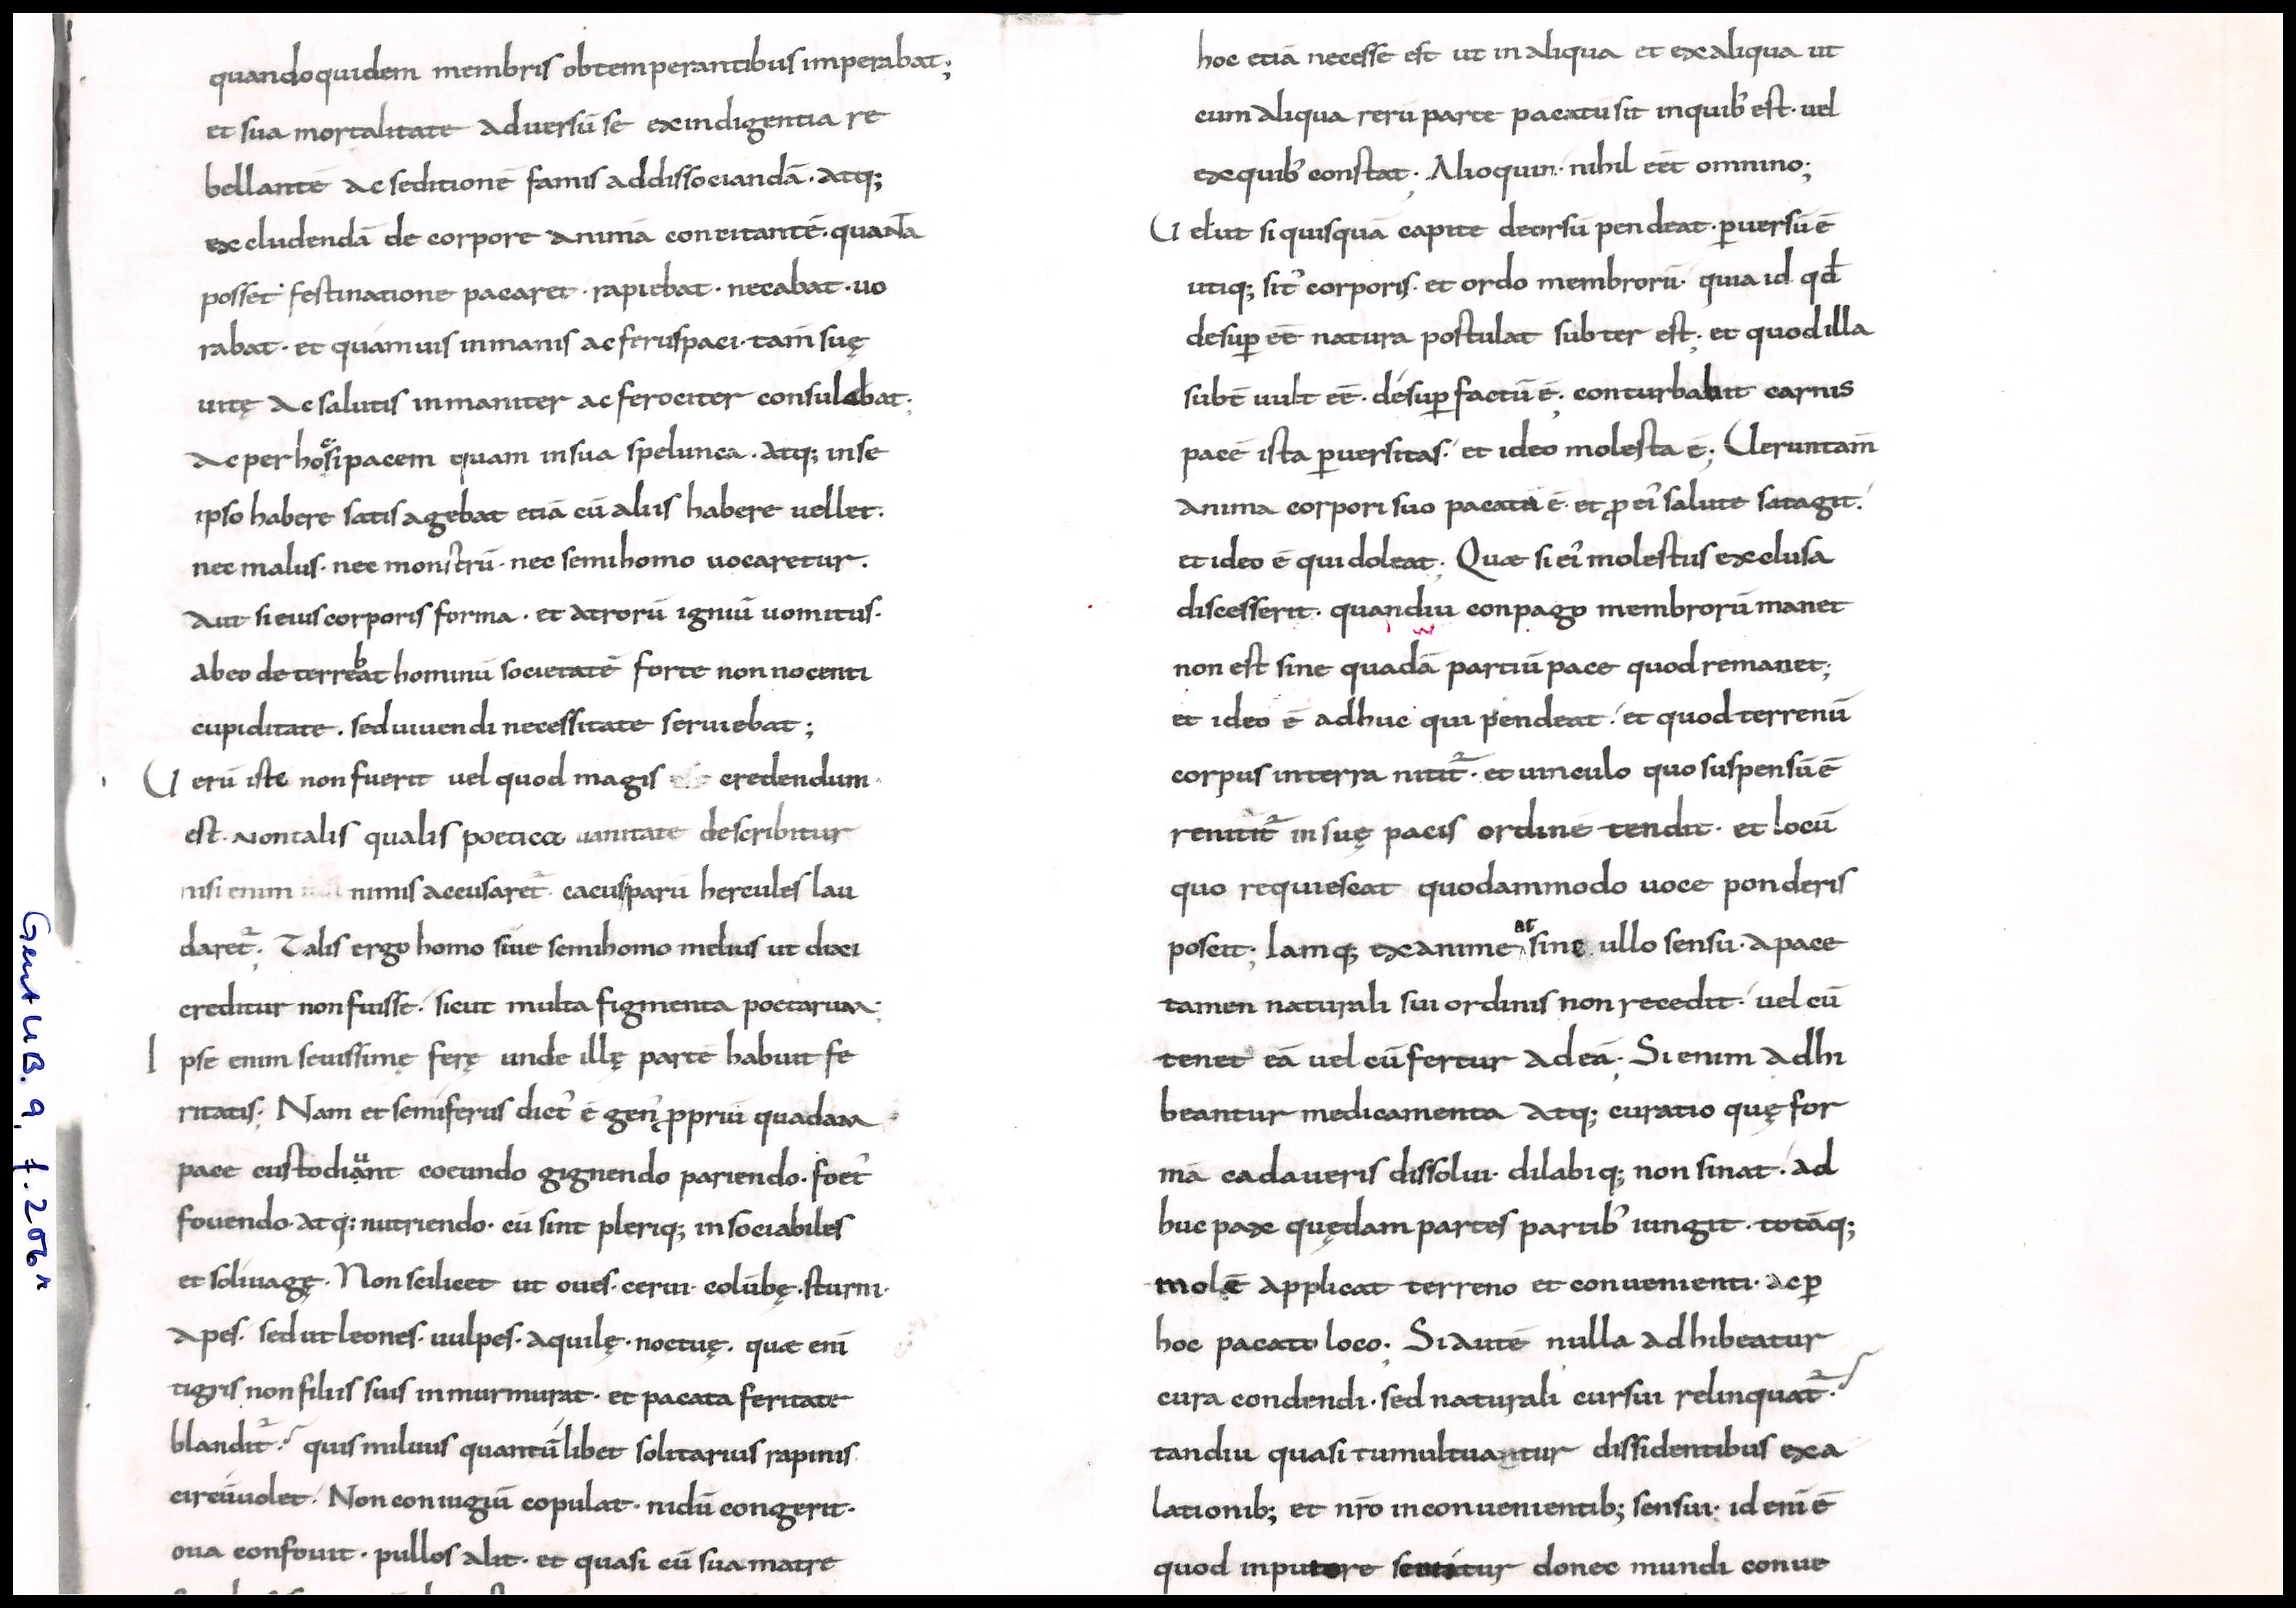 quandoquidem membris obtemperantibus imperabat;
et sua mortalitate aduersū se exindigentia re
bellantē ac seditionē famis addissociandā. atq;
excludendā de corpore animā concitantē. quanta
posset festinatione pacaret. rapiebat. necabat. uo
rabat. et quamuis inmanis ac ferus paci. tam̄ suę
uitę ac salutis inmaniter ac ferociter consulebat;
ac per hoc si pacem quam in sua spelunca. atq; in se
ipso habere satis agebat etiā cū aliis habere uellet.
nec malus. nec monstrū. nec semihomo uocaretur.
aut si eius corporis forma. et atrorū igniū uomitus.
ab eo deterrebat hominū societatē forte non nocenti
cupiditate. sed uiuendi necessitate seruiebat;
Uerū iste non fuerit uel quod magis credendum
est. Non talis qualis poetica uanitate describitur
nisi enim nimis accusaret᷑ cacus parū hercules lau
daret᷑; Talis ergo homo siue semihomo melius ut dixi
creditur non fuisse. sicut multa figmenta poetarum;
Ipse enim seuissimę ferę unde illę partē habuit fe
ritatis; Nam et semiferus dict᾿ ē gen᾿ ꝓpriū quadam
pace custodiunt coeundo gignendo pariendo. foet᾿
fouendo. atq; nutriendo. cū sint pleriq; insociabiles
et soliuagę. Non scilicet ut oues. cerui. colūbę. sturni.
apes. sed ut leones. uulpes. aquilę. noctuę. quae eni
tigris non filiis suis inmurmurat. et pacata feritate
blandit᷑. quis miluus quantūlibet solitarius rapinis
circūuolet. Non coniugiū copulat. nidū congerit.
oua confouit. pullos alit. et quasi cū sua matre
hoc etiā necesse est ut in aliqua et ex aliqua ut
cum aliqua rerū parte pacatū sit inquib᾿ est. uel
exquib᾿ constat; Alioquin nihil eēt omnino;
Uelut si quisquā capite deorsū pendeat. ꝑuersū ē
utiq; sit᾿ corporis. et ordo membrorū. quia id qđ
desuꝑ eē natura postulat subter est; et quod illa
subt̄ uult eē. desuꝑ factū ē; conturbabit carnis
pacē ista ꝑuersitas. et ideo molesta ē; Ueruntam̄
anima corpori suo pacata ē. et ꝓ ei᾿ salute satagit.
et ideo ē qui doleat; Quae si ei᾿ molestus exclusa
discesserit. quandiu conpago membrorū manet
non est sine quadā partiū pace quod remanet;
et ideo ē adhuc qui pendeat. et quod terrenū
corpus in terra nitit᷑. et uinculo quo suspensū ē
renitit᷑ in suę pacis ordinē tendit. et locū
quo requiescat quodammodo uoce ponderis
poscit; Iamq; exanime at sine ullo sensu. a pace
tamen naturali sui ordinis non recedit. uel cū
tenet eā uel cū fertur ad eā; Si enim adhi
beantur medicamenta atq; curatio quę for
mā cadaueris dissolui. dilabiq; non sinat. ad
huc pax quędam partes partib᾿ iungit. totāq;
molē applicat terreno et conuenienti. ac ꝑ
hoc pacato loco; Si autē nulla adhibeatur
cura condendi. sed naturali cursui relinquat᷑.
tandiu quasi tumultuantur dissidentibus exa
lationib; et nr̄o inconuenientib; sensui. id eni ē
quod in putore sentitur donec mundi conue
Gent UB. 9, f. 206r